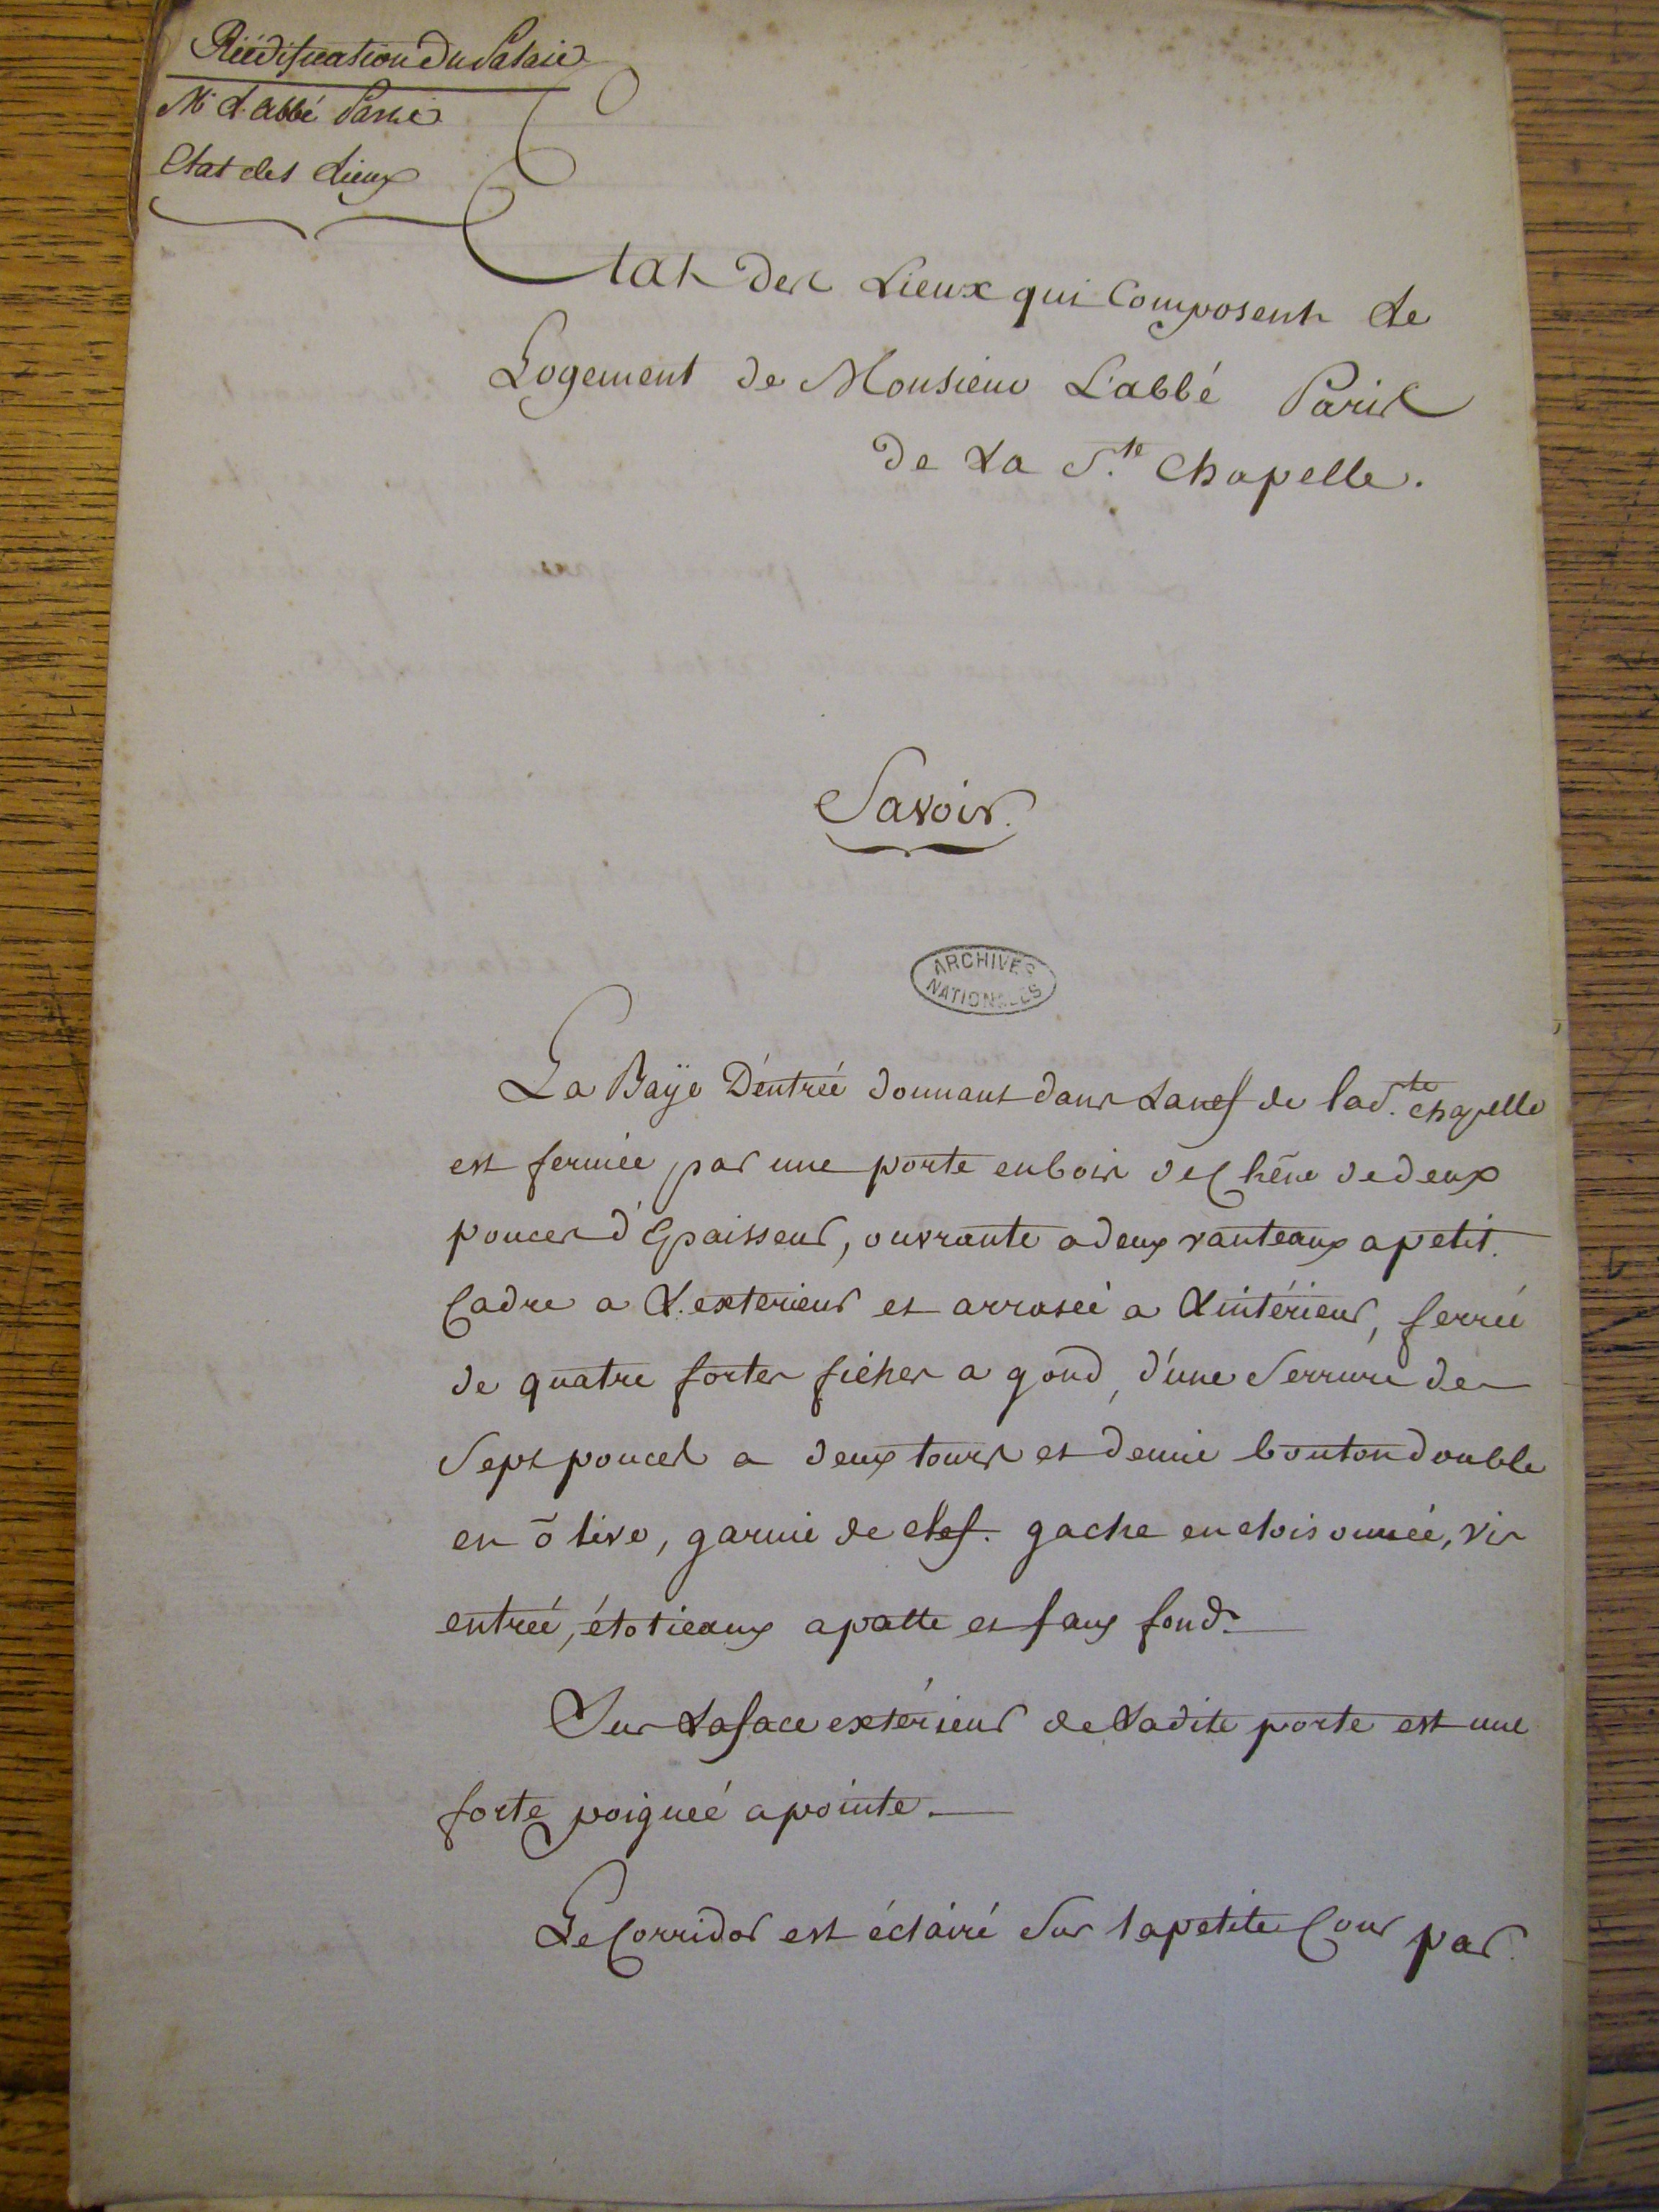 Réédification Du Palais
Mr L'abbé Paris
Etat des Lieux
Etat Des Lieux qui Composent Le
Logement de Monsieur L'abbé Paris
de La Ste Chapelle.
Savoir.
ARCHIVES
NATIONALES
La Baÿe D'entreé donnant dans La nef de la Ste chapelle
est fermée par une porte en bois de Chêne de deux
pouces d'Epaisseur, ouvrante a deux vanteaux a petit
Cadre a L'exterieur et arrasée a L'intérieur, ferrée
de quatre fortes fiches a gond, d'une Serrure de
Sept pouces a deux tours et demie bouton double
en olive, garnie de clef. gache encloisonnée, vis
entreé, étotieaux a patte et faux fond.
Sur La face extérieur de Ladite porte est une
forte poigneé a pointe.
Le Corridor est éclairé Sur la petite Cour par